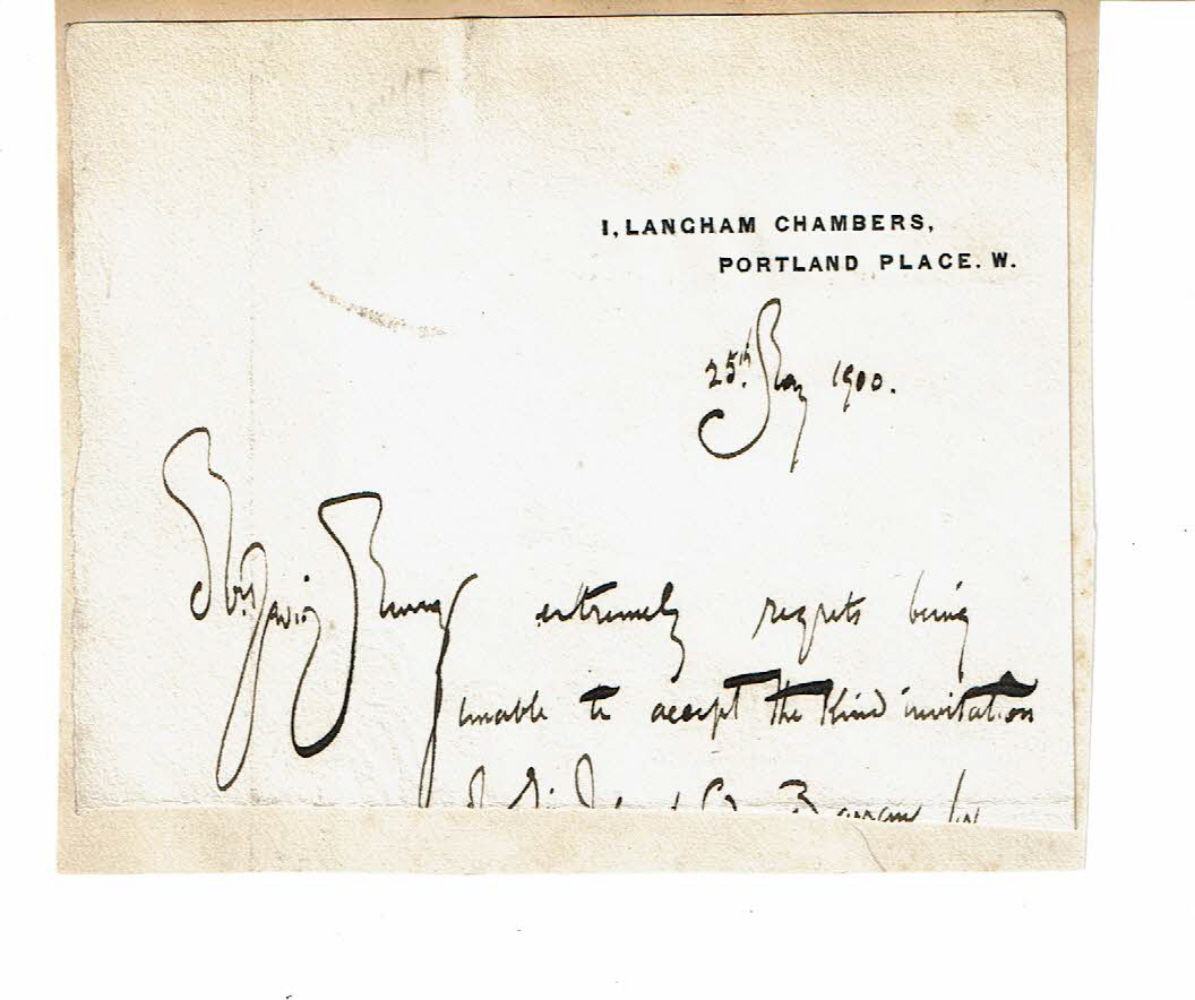 1, LANGHAM CHAMBERS,
PORTLAND PLACE. W.
25th. May 1900.
Mr. David Murray extremely regrets being
unable to accept the kind invitation